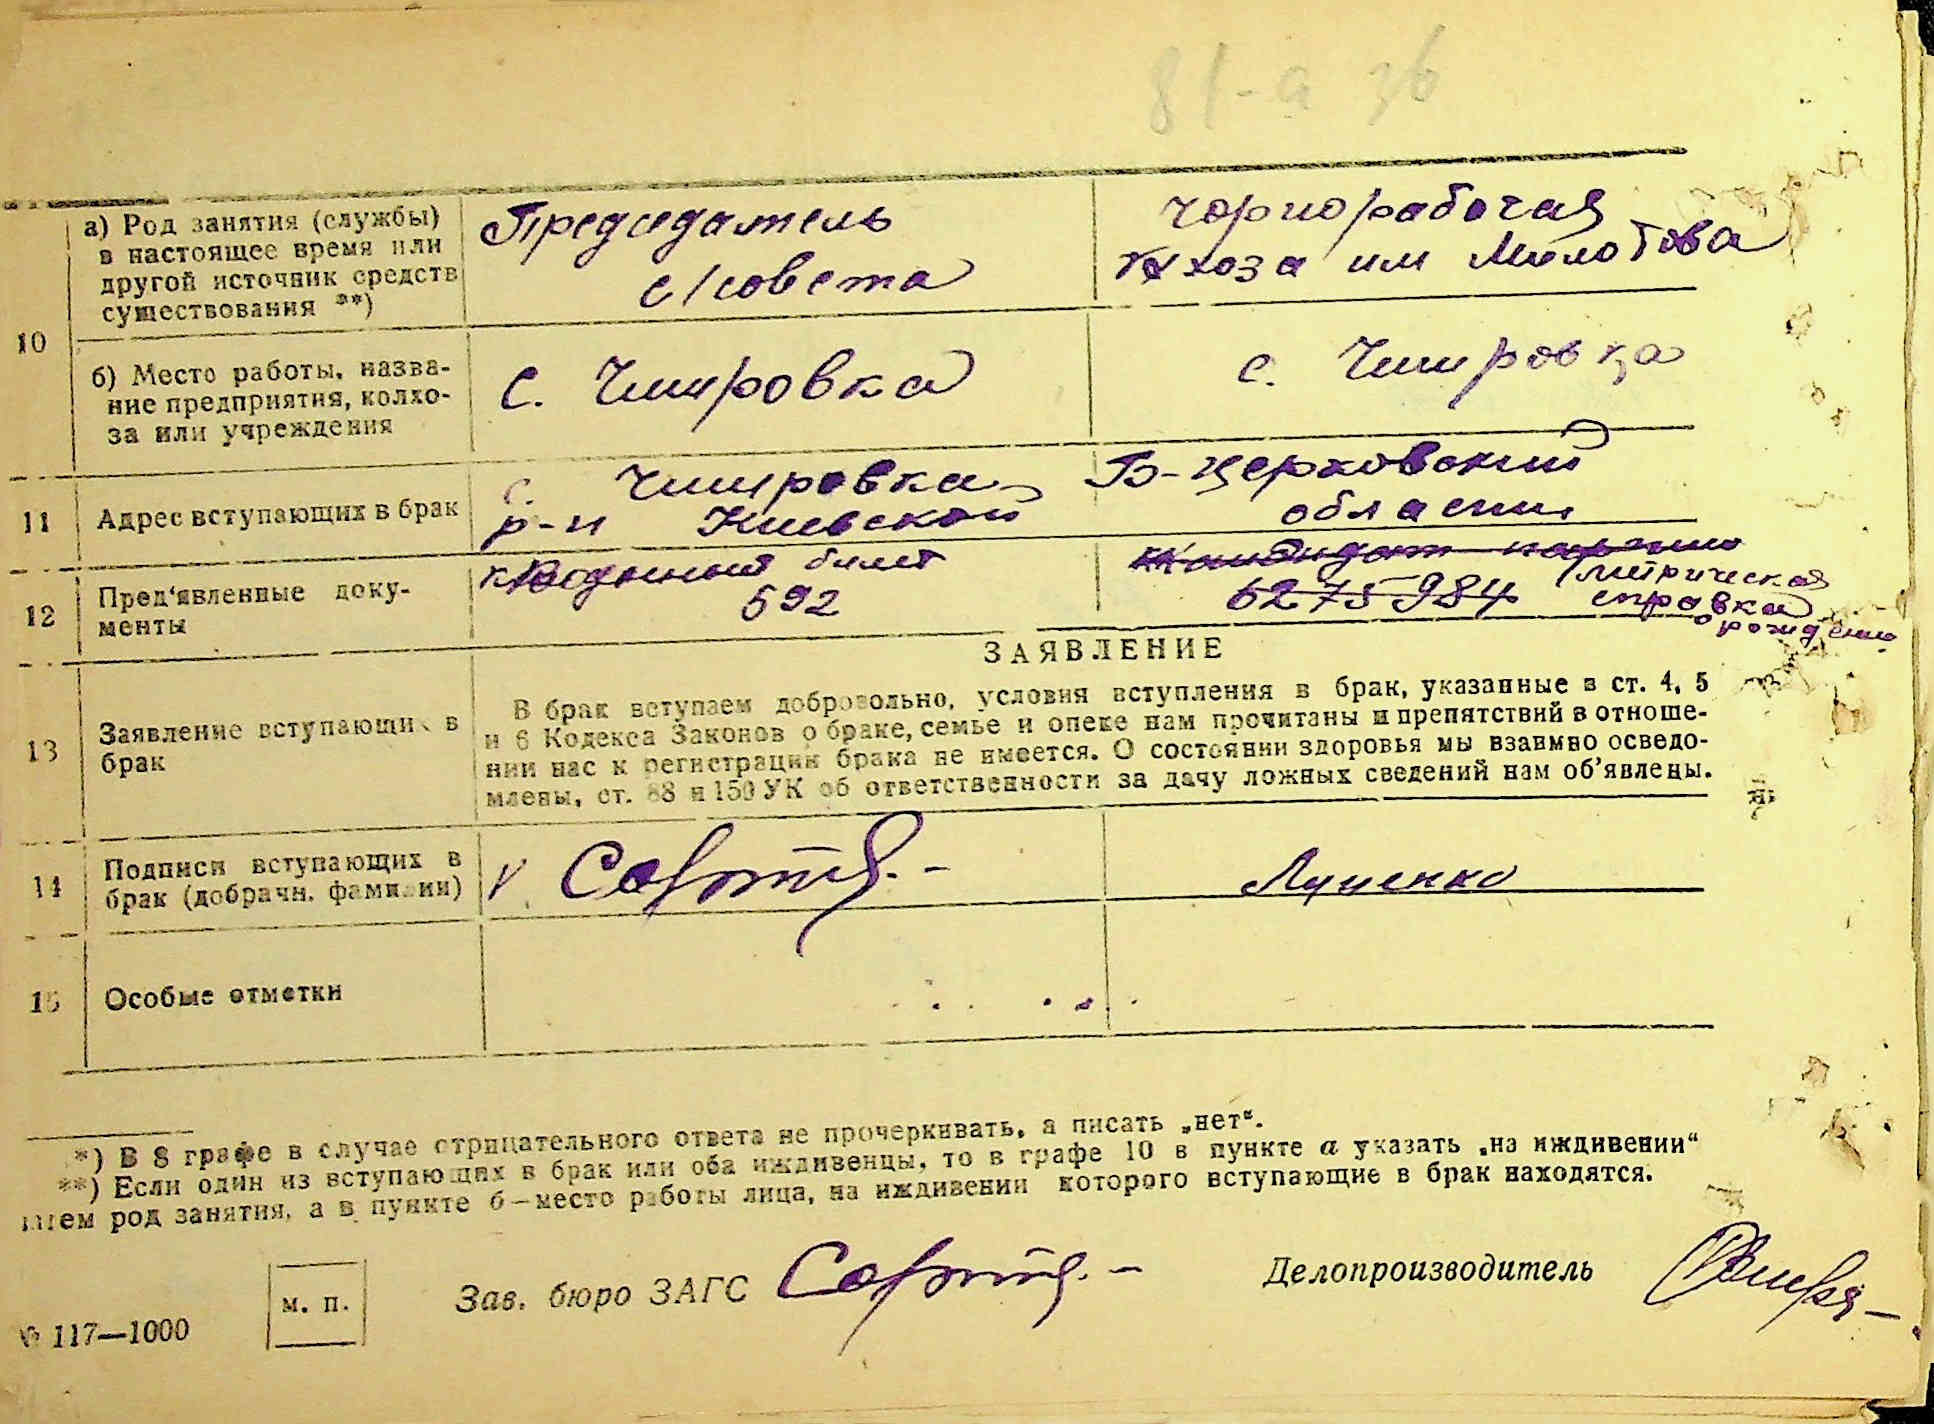 81-а зв
10
а) Род занятия (службы)
в настоящее время или
другой источник средств
существования **)
Председатель
с/совета
Чорнорабочая
к/хоза им Молотова
б) Место работы, назва-
ние предприятия, колхо-
за или учреждения
с. Чмировка
с. Чмировка
11
Адрес вступающих в брак
с. Чмировка Б-Церковский
р-н Киевской области
12
Пред‘явленные доку-
менты
билет
592
6275984
Митрическая
справка
о рождении
ЗАЯВЛЕНИЕ
13
Заявление вступающих в
брак
В брак вступаем добровольно, условия вступления в брак, указанные в ст. 4, 5
и 6 Кодекса Законов о браке, семье и опеке нам прочитаны и препятствий в отноше-
нии нас к регистрации брака не имеется. О состоянии здоровья мы взаимно осведо-
млены, ст. 88 и 150 УК об ответственности за дачу ложных сведений нам об’явлены.
14
Подписи вступающих в
брак (добрачн. фамилии)
Луценко
15
Особые отметки
*) В 8 графе в случае отрицательного ответа не прочеркивать, а писать „нет“.
**) Если один из вступающих в брак или оба иждивенцы, то в графе 10 в пункте а указать „на иждивении“
чьем род занятия, а в пункте б—место работы лица, на иждивении которого вступающие в брак находятся.
м. п.
Зав. бюро ЗАГС
Делопроизводитель
117—1000